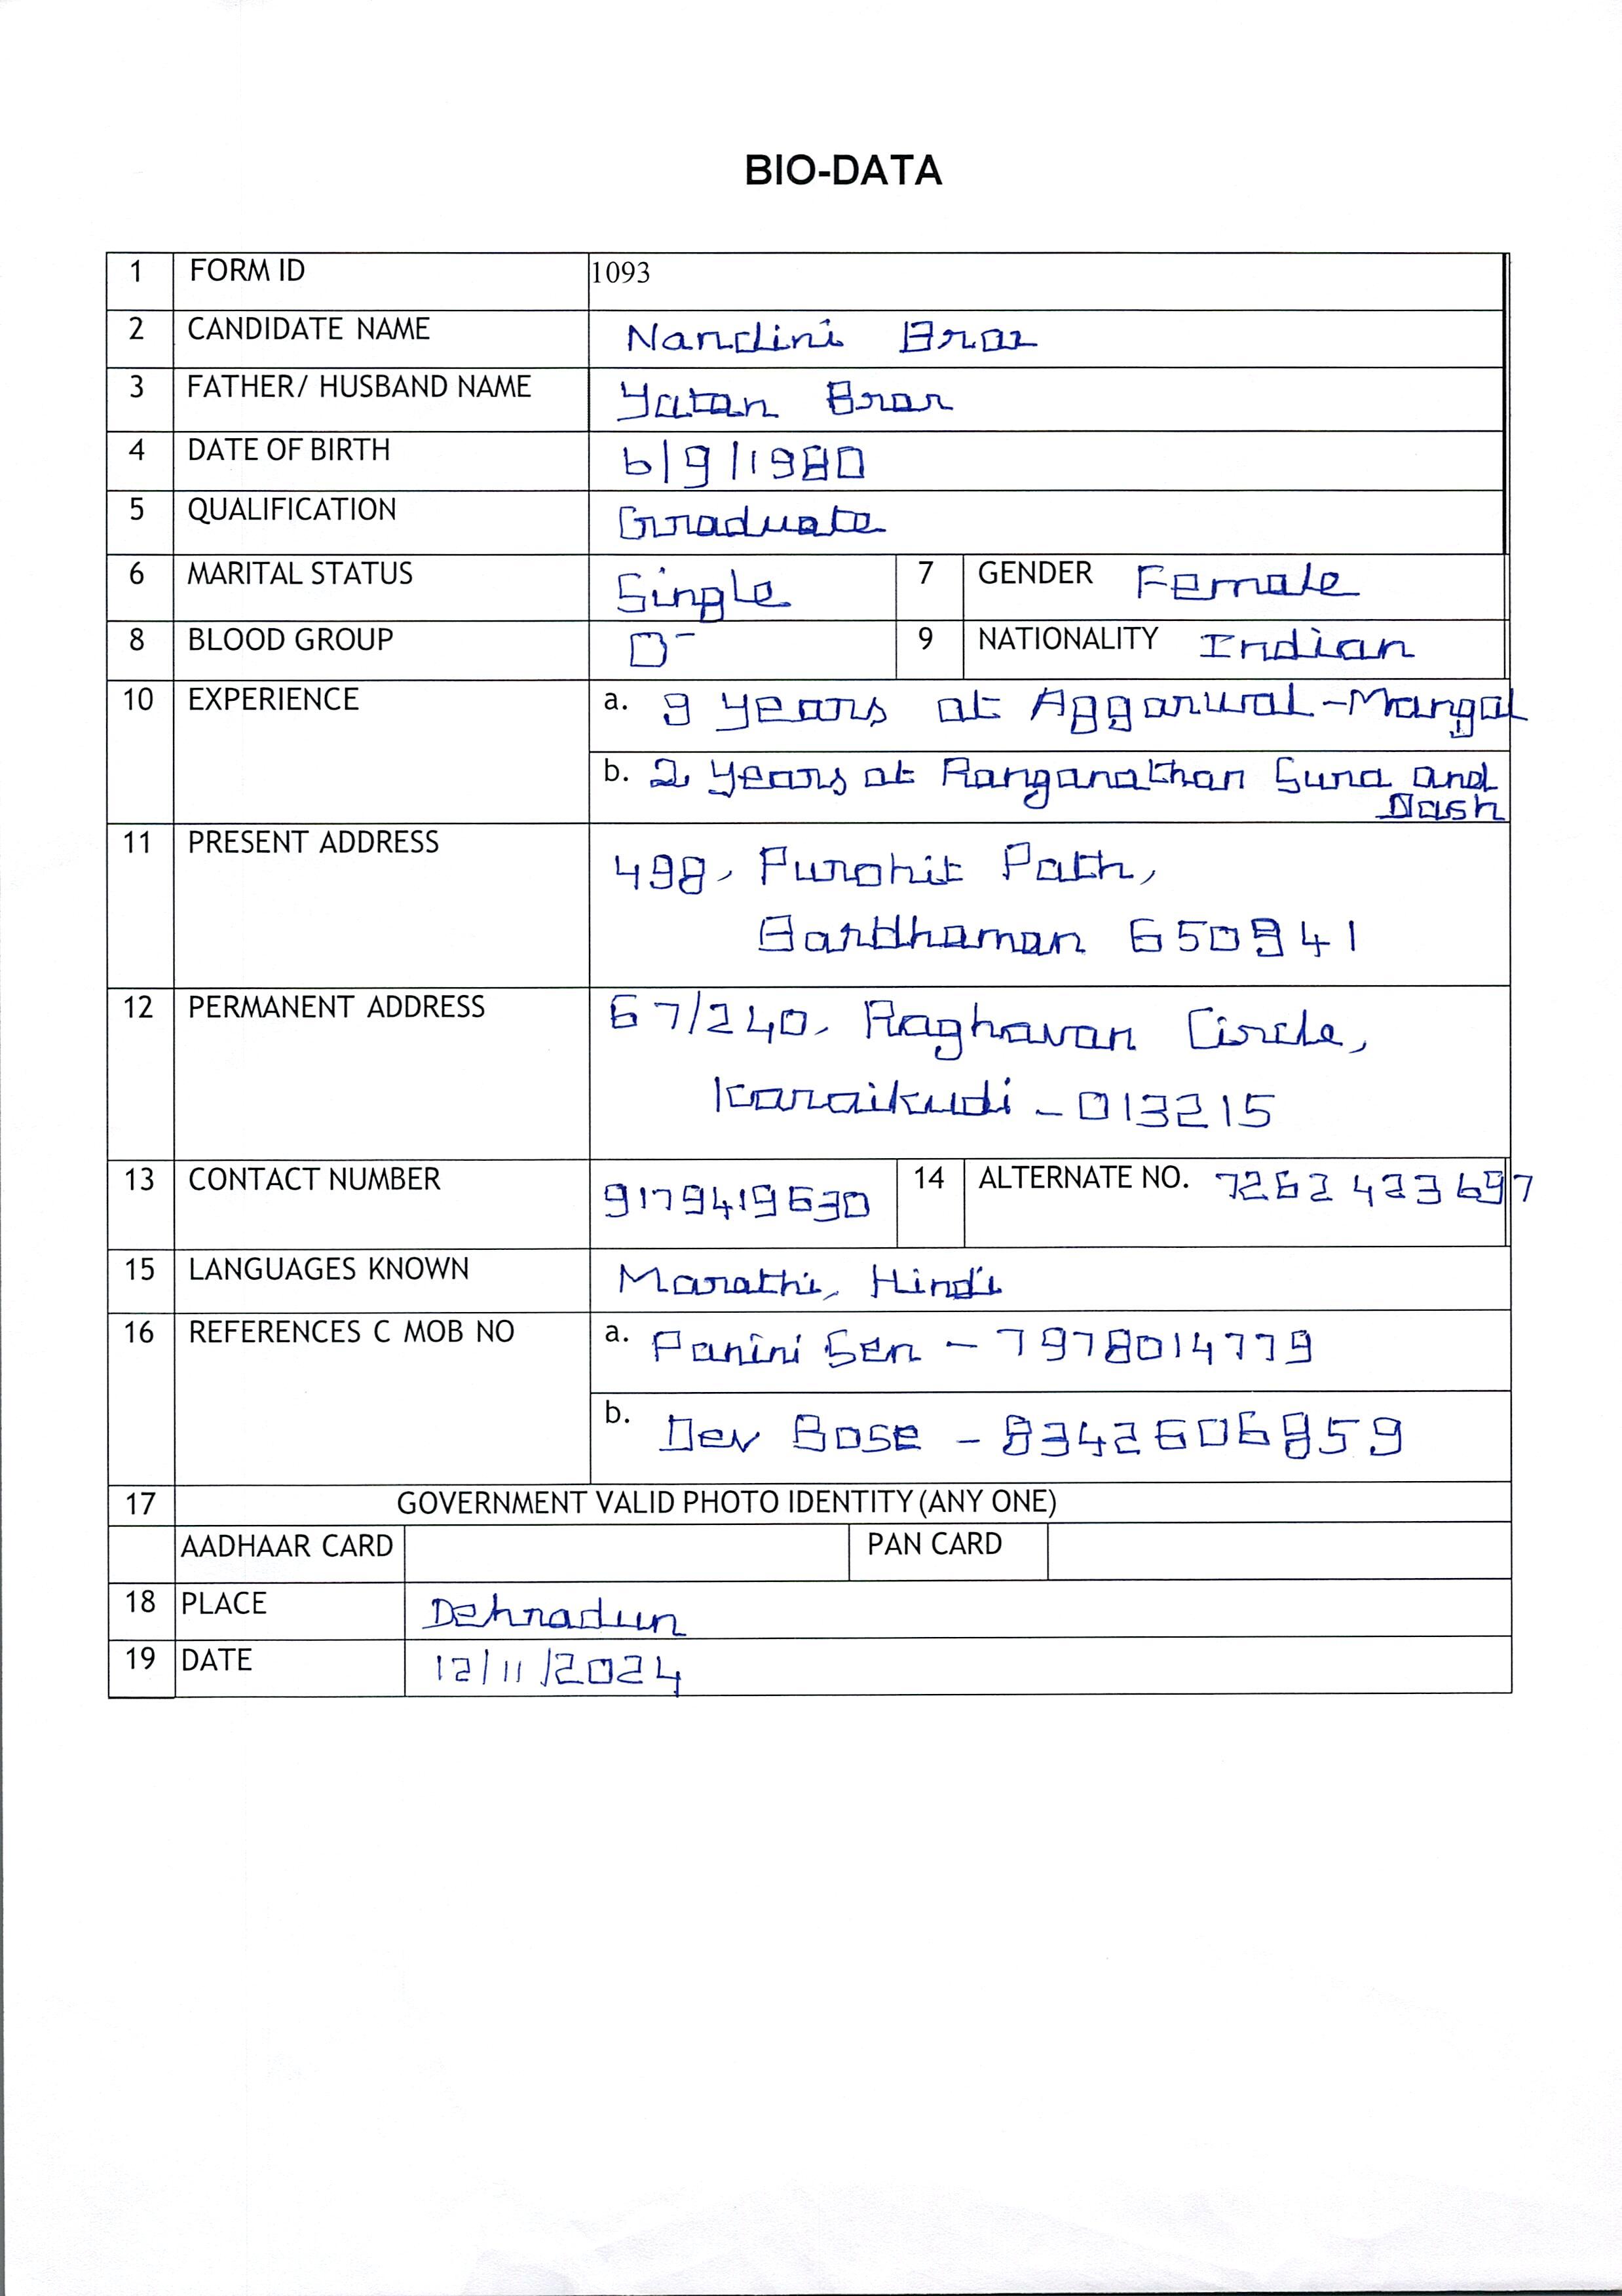 BIO-DATA
1 FORM ID 1093
2 CANDIDATE NAME Nandini Brar
3 FATHER/ HUSBAND NAME Yatan Brar
4 DATE OF BIRTH 6/9/1980
5 QUALIFICATION Graduate
6 MARITAL STATUS Single 7 GENDER Female
8 BLOOD GROUP O- 9 NATIONALITY Indian
10 EXPERIENCE a. 9 years at Aggarwal-Mangal
b. 2 years at Ranganathan Sura and
Dash
11 PRESENT ADDRESS 498, Purohit Path,
Bardhaman 650941
12 PERMANENT ADDRESS 67/240, Raghavan Circle,
Karaikudi - 013215
13 CONTACT NUMBER 9179419630 14 ALTERNATE NO. 7262423697
15 LANGUAGES KNOWN Marathi, Hindi
16 REFERENCES C MOB NO a. Panini Sen - 7978014779
b. Dev Bose - 8342606859
17 GOVERNMENT VALID PHOTO IDENTITY (ANY ONE)
AADHAAR CARD PAN CARD
18 PLACE Dehradun
19 DATE 12/11/2024